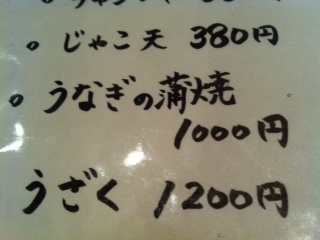 。じゃこ天 380円
。うなぎの蒲焼
1000円
うざく 1200円